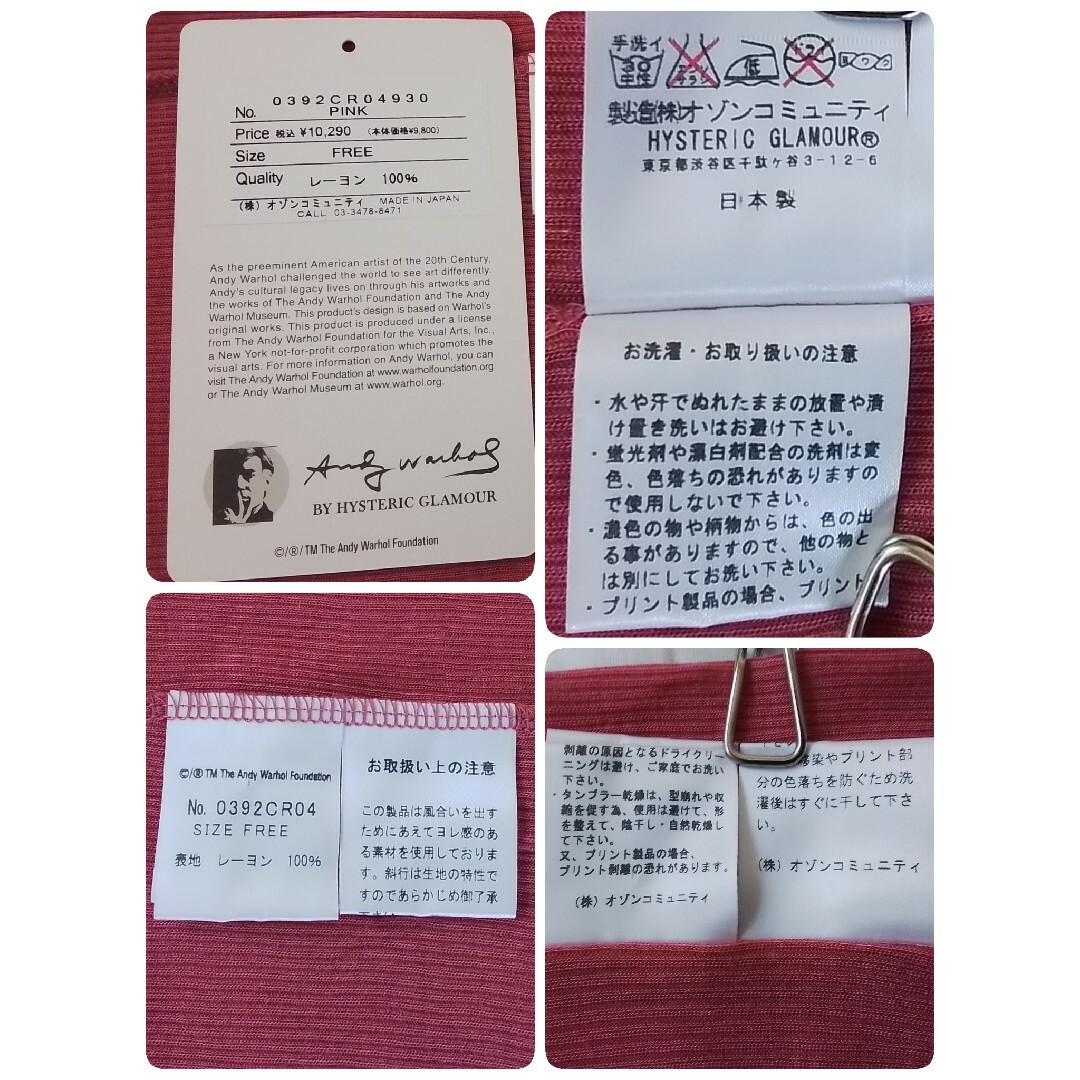 0392CR04930
No. PINK
Price 税込 ¥10,290 (本体価格¥9,800)
Size FREE
Quality レーヨン 100%
(株) オゾンコミュニティ MADE IN JAPAN
CALL 03-3478-8471
As the preeminent American artist of the 20th Century,
Andy Warhol challenged the world to see art differently.
Andy's cultural legacy lives on through his artworks and
the works of The Andy Warhol Foundation and The Andy
Warhol Museum. This product's design is based on Warhol's
original works. This product is produced under a license
from The Andy Warhol Foundation for the Visual Arts, Inc.,
a New York not-for-profit corporation which promotes the
visual arts. For more information on Andy Warhol, you can
visit The Andy Warhol Foundation at www.warholfoundation.org
or The Andy Warhol Museum at www.warhol.org.
Andy Warhol
BY HYSTERIC GLAMOUR
©/®/TM The Andy Warhol Foundation
手洗イ
30
中性
低
ドライ
製造(株)オゾンコミュニティ
HYSTERIC GLAMOUR®
東京都渋谷区千駄ヶ谷3-12-6
日本製
お洗濯・お取り扱いの注意
・水や汗でぬれたままの放置や漬
け置き洗いはお避け下さい。
・蛍光剤や漂白剤配合の洗剤は変
色、色落ちの恐れがありますの
で使用しないで下さい。
・濃色の物や柄物からは、色の出
る事がありますので、他の物と
は別にしてお洗い下さい。
・プリント製品の場合、プリント
©/® TM The Andy Warhol Foundation
No. 0392CR04
SIZE FREE
表地 レーヨン 100%
お取扱い上の注意
この製品は風合いを出す
ためにあえてヨレ感のあ
る素材を使用しておりま
す。斜行は生地の特性で
すのであらかじめ御了承
剥離の原因となるドライクリー
ニングは避け、ご家庭でお洗い
下さい。
・タンブラー乾燥は、型崩れや収
縮を促す為、使用は避けて、形
を整えて、陰干し・自然乾燥し
て下さい。
又、プリント製品の場合、
プリント剥離の恐れがあります。
(株) オゾンコミュニティ
染やプリント部
分の色落ちを防ぐため洗
濯後はすぐに干して下さ
い。
(株) オゾンコミュニティ